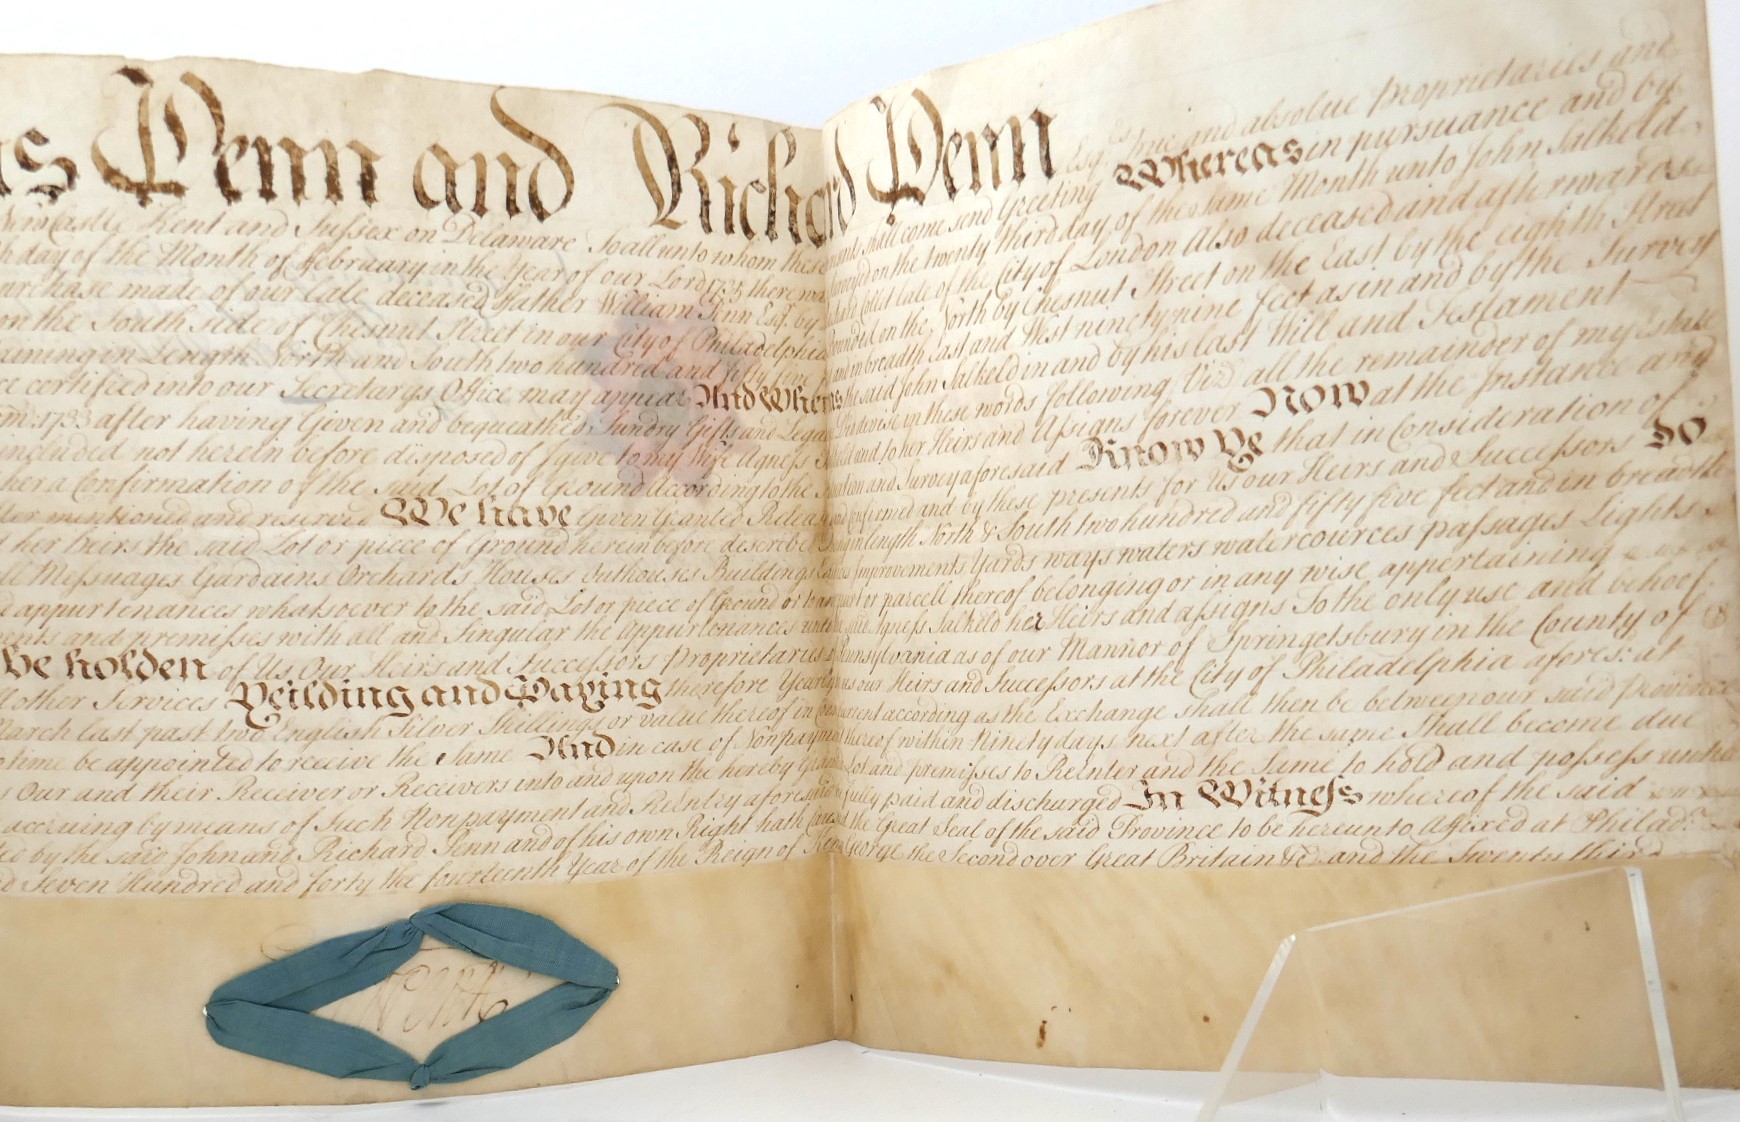 as Penn and Richard Penn Esq.rs True and absolute Proprietaries and
NewCastle Kent and Sussex on Delaware To all unto whom these shall come send Greeting Whereas in pursuance and by
day of the Month of February in the Year of our Lord 1735 there was Surveyed on the twenty third day of the same Month unto John Salkeld
urchase made of our late deceased Father William Penn Esq. by late of the City of London Also deceased and afterwards
on the South side of Chesnut Street in our City of Philadelphia Bounded on the North by Chesnut Street on the East by the eighth Street
aining in Length North and South two hundred and fifty five and in breadth East and West ninety nine feet as in and by the Survey
ce certified into our Secretarys Office may appear And Whereas the said John Salkeld in and by his last Will and Testament
1733 after having Given and bequeathed Sundry Gifts and Legacies Likewise in these words following Vizt all the remainder of my Estate
included not herein before disposed of I give to my Wife Agness and to her Heirs and Assigns forever Now at the Instance and
her a Confirmation of the said Lot of Ground According to the and Survey aforesaid Know Ye that in Consideration of
ter mentioned and reserved We have Given Granted Released and confirmed and by these presents for Us our Heirs and Successors Do
her heirs the said Lot or piece of Ground herein before described in length North & South two hundred and fifty five feet and in breadth
ll Messuages Gardains Orchards Houses Outhouses Buildings Improvements Yards ways waters watercources passages Lights
e appurtenances whatsoever to the said Lot or piece of Ground or to any part or parcell thereof belonging or in any wise appertaining
ents and premisses with all and Singular the Appurtenances unto Agness Salkeld her Heirs and assigns To the only use and behoof
be holden of Us Our Heirs and Successors Proprietaries Pennsylvania as of our Mannor of Springetsbury in the County of
other Services Yeilding and Paying therefore Yearly our Heirs and Successors at the City of Philadelphia afores: at
March last past two English Silver Shillings or value thereof in Coin current according as the Exchange shall then be between our said Province
time be appointed to receive the Same And in case of Nonpayment thereof within Ninety days next after the same Shall become due
Our and their Receiver or Receivers into and upon the hereby Granted Lot and premisses to Reenter and the Same to hold and possess untill
accruing by means of Such Nonpayment and ReEntry aforesaid fully paid and discharged In Witness whereof the said
by the said John and Richard Penn and of his own Right hath Caused the Great Seal of the said Province to be hereunto Affixed at Philad.a
Seven Hundred and forty the fourteenth Year of the Reign of King George the Second over Great Britain &c. and the Twenty third